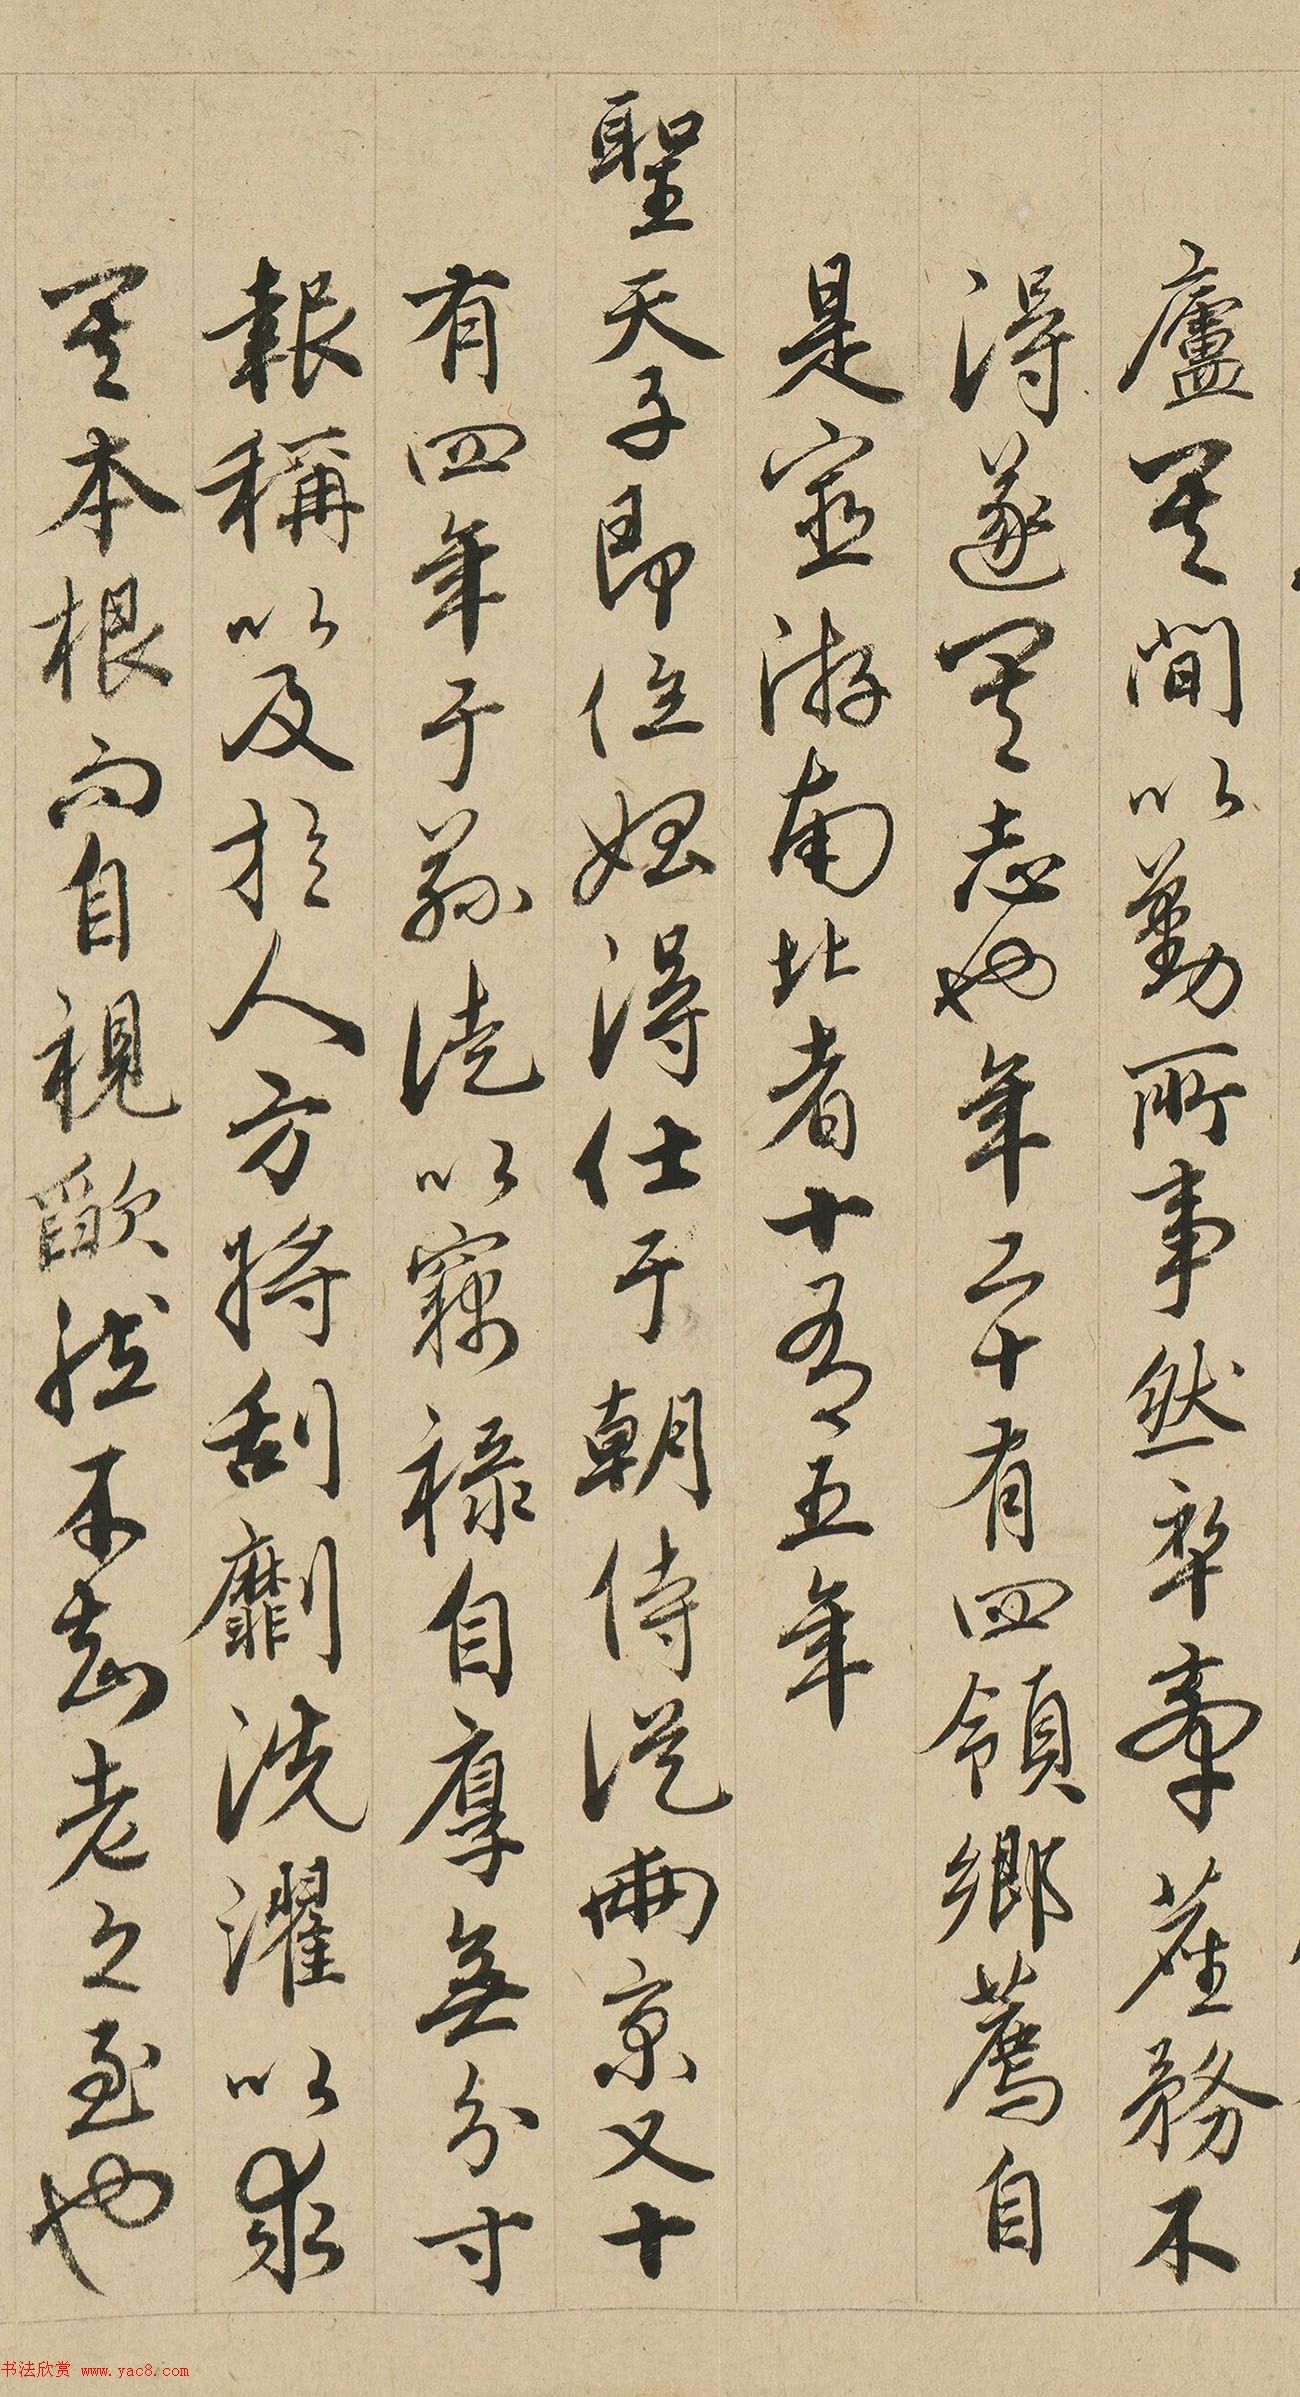 廬其間以勤所事然卒牽塵務不
得遂其志也年二十有四領鄉薦自
是宦游南北者十有五年
聖天子即位始得仕于朝侍從兩京又十
有四年于茲徒以竊祿自辱無分寸
報稱以及於人方將刮劘洗濯以求
其本根而自視欿然不知老之至也
书法欣赏 www.yac8.com